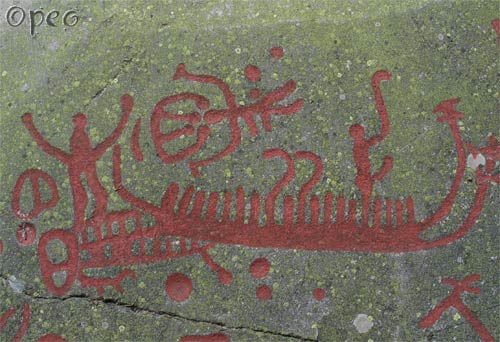 ©peg